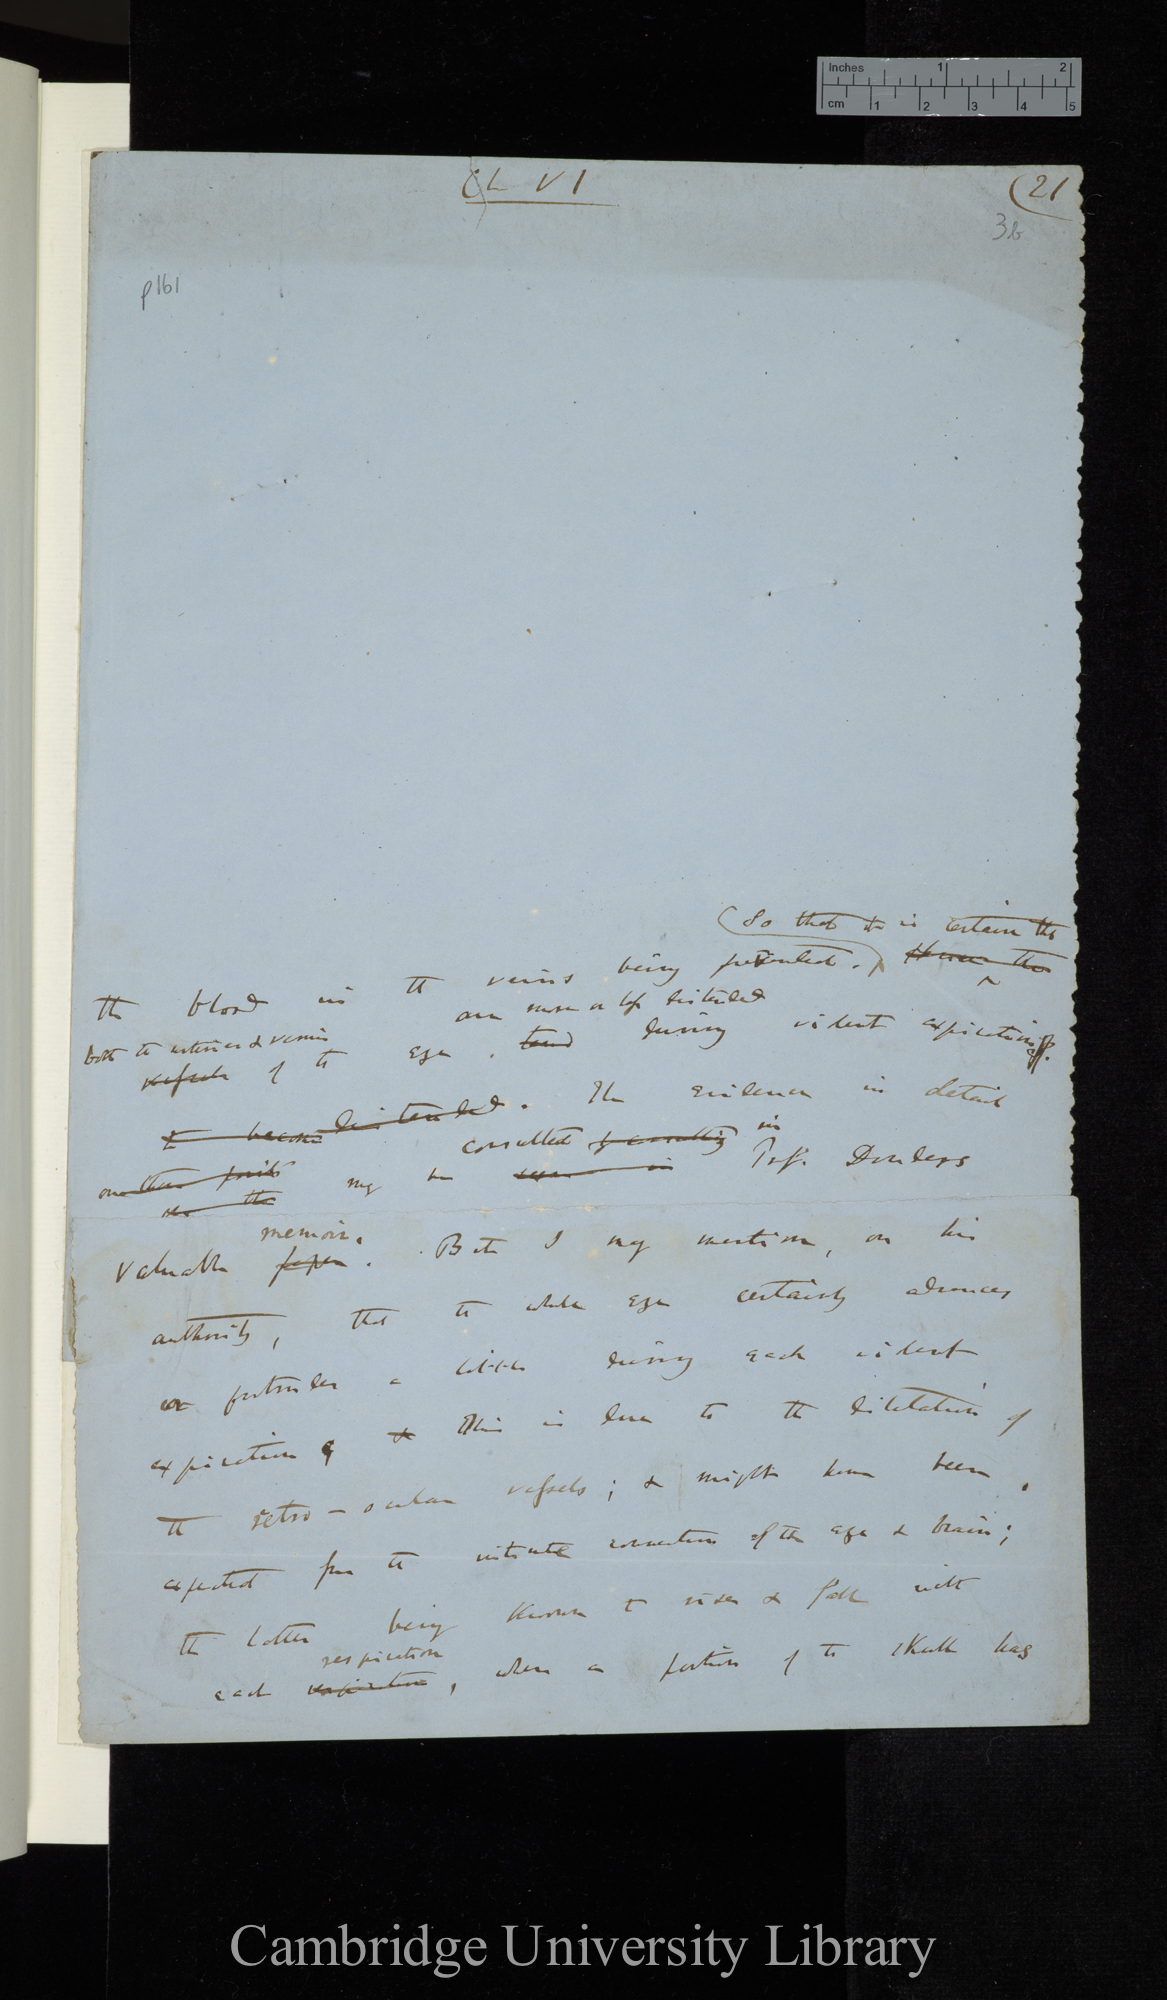 Inches 1 2
cm 1 2 3 4 5
Ch VI
(21
36
p161
(So that it is certain tht
the blood in the veins being prevented.) Hence the
are more or less distended
both the arteries & veins
vessels of the eye, tend during violent expiration.
to become distended. The evidence in detail
consulted by consulting in
on this point may be seen in Prof. Donders
on the
memoir.
valuable paper. But I may mention, on his
authority, that the whole eye certainly advances
or protrudes a little during each violent
expiration & This is due to the dilatation of
the retro-ocular vessels; & might have been
expected from the intimate connection of the eye & brain;
the latter being known to rise & fall with
respiration
each expiration, when a portion of the skull has
Cambridge University Library